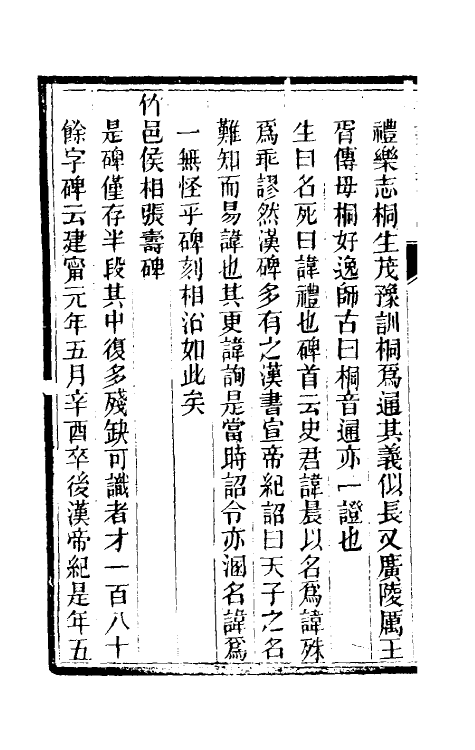 禮樂志桐生茂豫訓桐爲通其義似長又廣陵厲王
胥傳毋桐好逸師古曰桐音通亦一證也
生曰名死曰諱禮也碑首云史君諱晨以名爲諱殊
爲乖謬然漢碑多有之漢書宣帝紀詔曰天子之名
難知而易諱也其更諱詢是當時詔令亦溷名諱爲
一無怪乎碑刻相沿如此矣
竹邑侯相張壽碑
是碑僅存半段其中復多殘缺可識者才一百八十
餘字碑云建甯元年五月辛酉卒後漢帝紀是年五